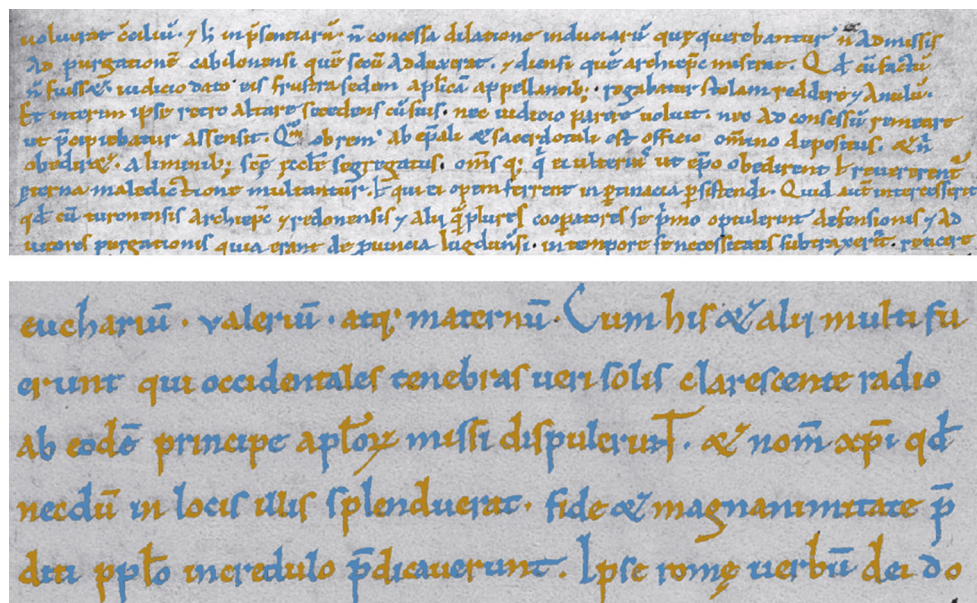 voluerat c̄ciliū. ⁊ h̄ in p̄sentiarū. n̄ concessa dilatione induciarū quę querebantur n̄ admissis
Ad purgationē cabilonensi quē secū Adduxerat. ⁊ diensi quē archiep̄c miserat. Qd̄ cū factū
n̄ fuiss&. iudicio dato eis frustra sedem aplicā appellantib;. rogabatur stolam reddere ⁊ Anulū.
Et interim ipse retro altare secedens cūsuis. nec iudicio parere voluit. nec Ad consessū remeare
ut p̄cipiebatur assensit. Qm̄ obrem Ab ep̄ali & sacerdotali est officio om̄ino depositus. & n̄
obedire. A liminib; scę ecclę segregatus. om̄s q; q̄ ei ulteri ut ep̄o obedirent l̄ reverterent
eterna maledictione multantur. l̄ qui ei opem ferrent in ptinacia psistendi. Quid aut̄ interesset
qd̄ cū turonensis Archiep̄c ⁊ redonensis ⁊ alij q̄plures coopatores se p̄mo optulerunt defensionis ⁊ Ad
iutores purgationis quia erant de puincia lugdun̄si. in tempore se necessitatis subtraxer̄t. reticere
euchariū. valeriū. atq; maternū. Cum his & alij multi fu
erunt qui occidentales tenebras veri solis clarescente radio
ab eodē principe apl̄oꝝ missi dispulerunt. & nom̄ xp̄i qd̄
necdū in locis illis splenduerat. fide & magnanimitate p̄
diti ppl̄o incredulo p̄dicaverunt. Ipse romę verbū dei do